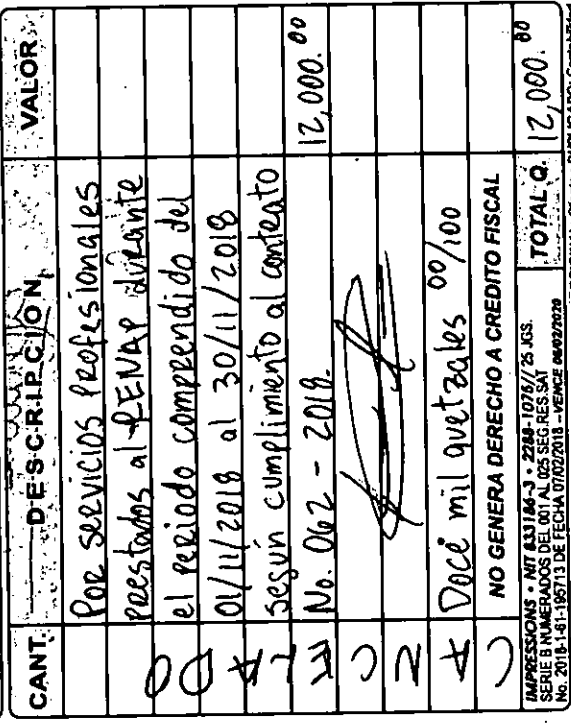 CANT. DESCRIPCION VALOR
Por servicios profesionales
prestados al RENAP durante
el periodo comprendido del
01/11/2018 al 30/11/2018
según cumplimiento al contrato
No. 062 - 2018. 12,000.00
Doce mil quetzales 00/100
CANCELADO
NO GENERA DERECHO A CREDITO FISCAL
IMPRESSIONS • NIT 833186-3 • 2288-1076 // 25 JGS.
SERIE B NUMERADOS DEL 001 AL 025 SEG.RES.SAT
No. 2018-1-61-195713 DE FECHA 07/02/2018 - VENCE 06/02/2020
TOTAL Q. 12,000.00